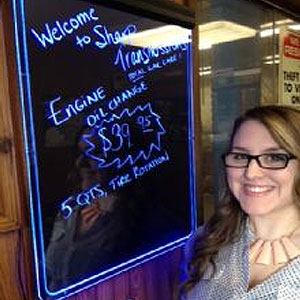 Welcome
to Sharp
Transmissions
TOTAL CAR CARE!
ENGINE
OIL CHANGE
$39.95
5 QTS, TIRE ROTATION
THEFT
TO V